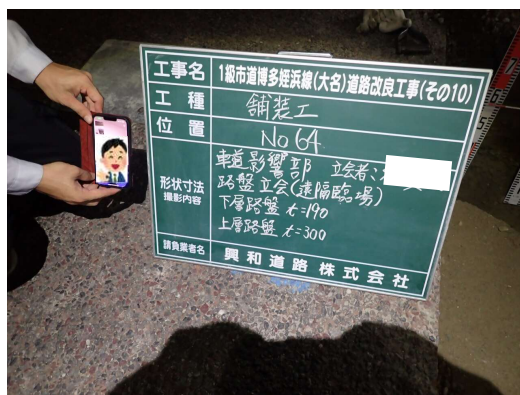 工事名 1級市道博多姪浜線(大名)道路改良工事(その10)
工種 舗装工
位置 No 64
形状寸法
撮影内容
車道影響部 立会者:
路盤立会(遠隔臨場)
下層路盤 t=190
上層路盤 t=300
請負業者名 興和道路株式会社